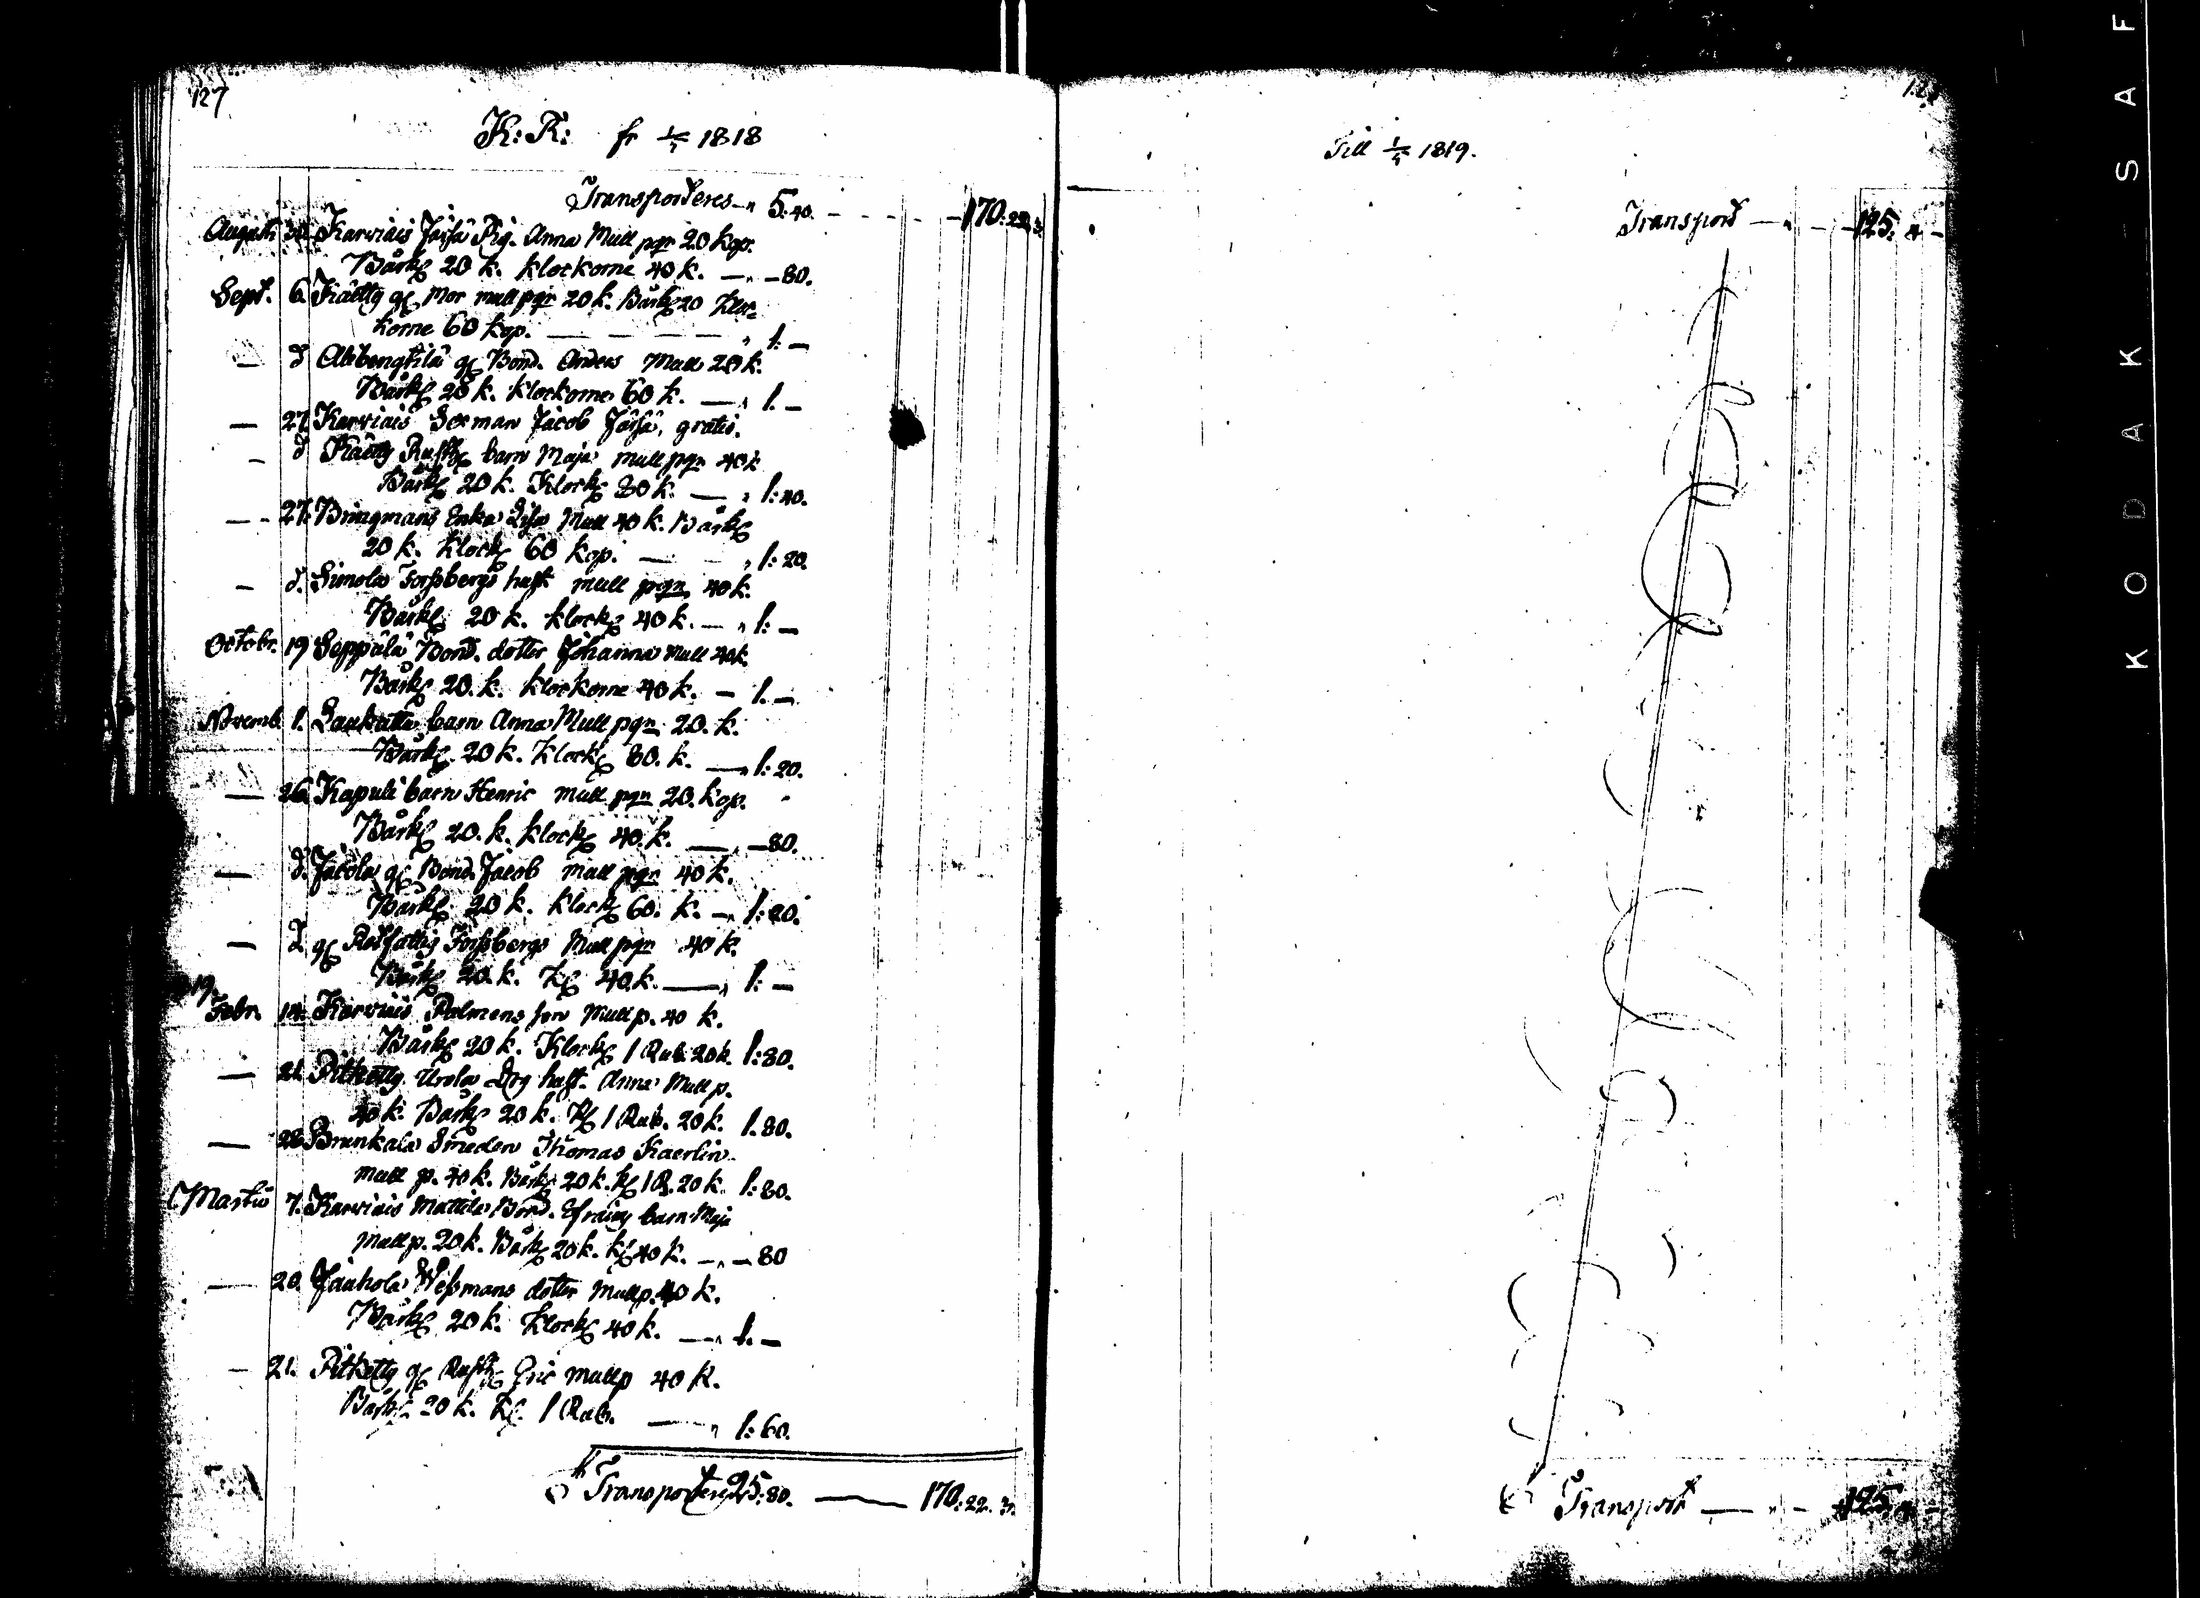 127
K: R: fr 1/5 1818
Transporteres 5: 40. 170: 22. 3.
Augusti 30 Karviais Jäisä Pig. Anna Mull pgr 20 kop.
Bårkl 20 k. klockorne 40 k. — 80.
Sept. 6. Kättÿ gl Mor mull pgr 20 k. Bårkl 20 kloc-
korne 60 kop. 1: —
— d Abbengtilä gl Bond. Anders Mull 20 k.
Bårkl 20 k. klockorne 60 k. — 1. —
— 27. Karviais Soc̄man Jacob Jäisä, gratis.
— d Kättÿ Rusth barn Maja mull pgr 40 k
Bårkl 20 k. Klockl 80 k. — 1: 40.
— 27. Bringmans Enka Lisa Mull 40 k. Bårkl
20 k. klockl 60 kop. — 1: 20.
— d. Simola Forssbergs hust mull pgn 40 k.
Bårkl 20 k. klockl 40 k. — 1: —
Octobr. 19 Seppälä Bond. dotter Johanna Mull 40 k.
Bårkl 20. k. klockorne 40 k. — 1. —
Novemb. 1. Laukatta barn Anna Mull pgn 20. k.
Bårkl 20 k. klockl 80. k. — 1: 20.
— 26. Kapuli barn Henric mull pgn 20. kop.
Bårkl 20. k. klockl 40. k. — 80.
— d. Jacola gl Bond. Jacob mull pgr 40 k.
Bårkl 20 k. klockl 60. k. — 1: 20.
— d. gl Rotfattig Forssbergs Mull pgr 40 k.
Bårkl 20 k. kl 40 k. — 1: —
19.
Febr. 14. Karviais Palmens son Mull p. 40 k.
Bårkl 20 k. Klockl 1 Rub. 20 k. 1: 80.
— 21. Pitkättÿ Urola Drg hust. Anna Mull p.
40 k. Bårkl 20 k. kl 1 Rub. 20 k. 1. 80.
— 28. Brunkala Smeden Thomas Kaerlin
mull p. 40 k. Bårkl 20 k. kl 1 R. 20 k. 1: 80.
Martii 7. Karviais Mattila Bond. Efraims barn Maja
mull p. 20 k. Bårkl 20 k. kl 40 k. — 80
— 20. Jauhola Wessmans dotter Mull p. 40 k.
Bårkl 20 k. klockl 40 k. — 1. —
— 21. Pitkättÿ gl Rusth Eric mull p 40 k.
Bårkl 20 k. kl. 1 Rub. — 1: 60.
Transporteres 25: 80. — 170: 22. 3.
Till 1/5 1819.
Transport — 125. 4 —
Transport — 125. 4 —
KODAK - SAF